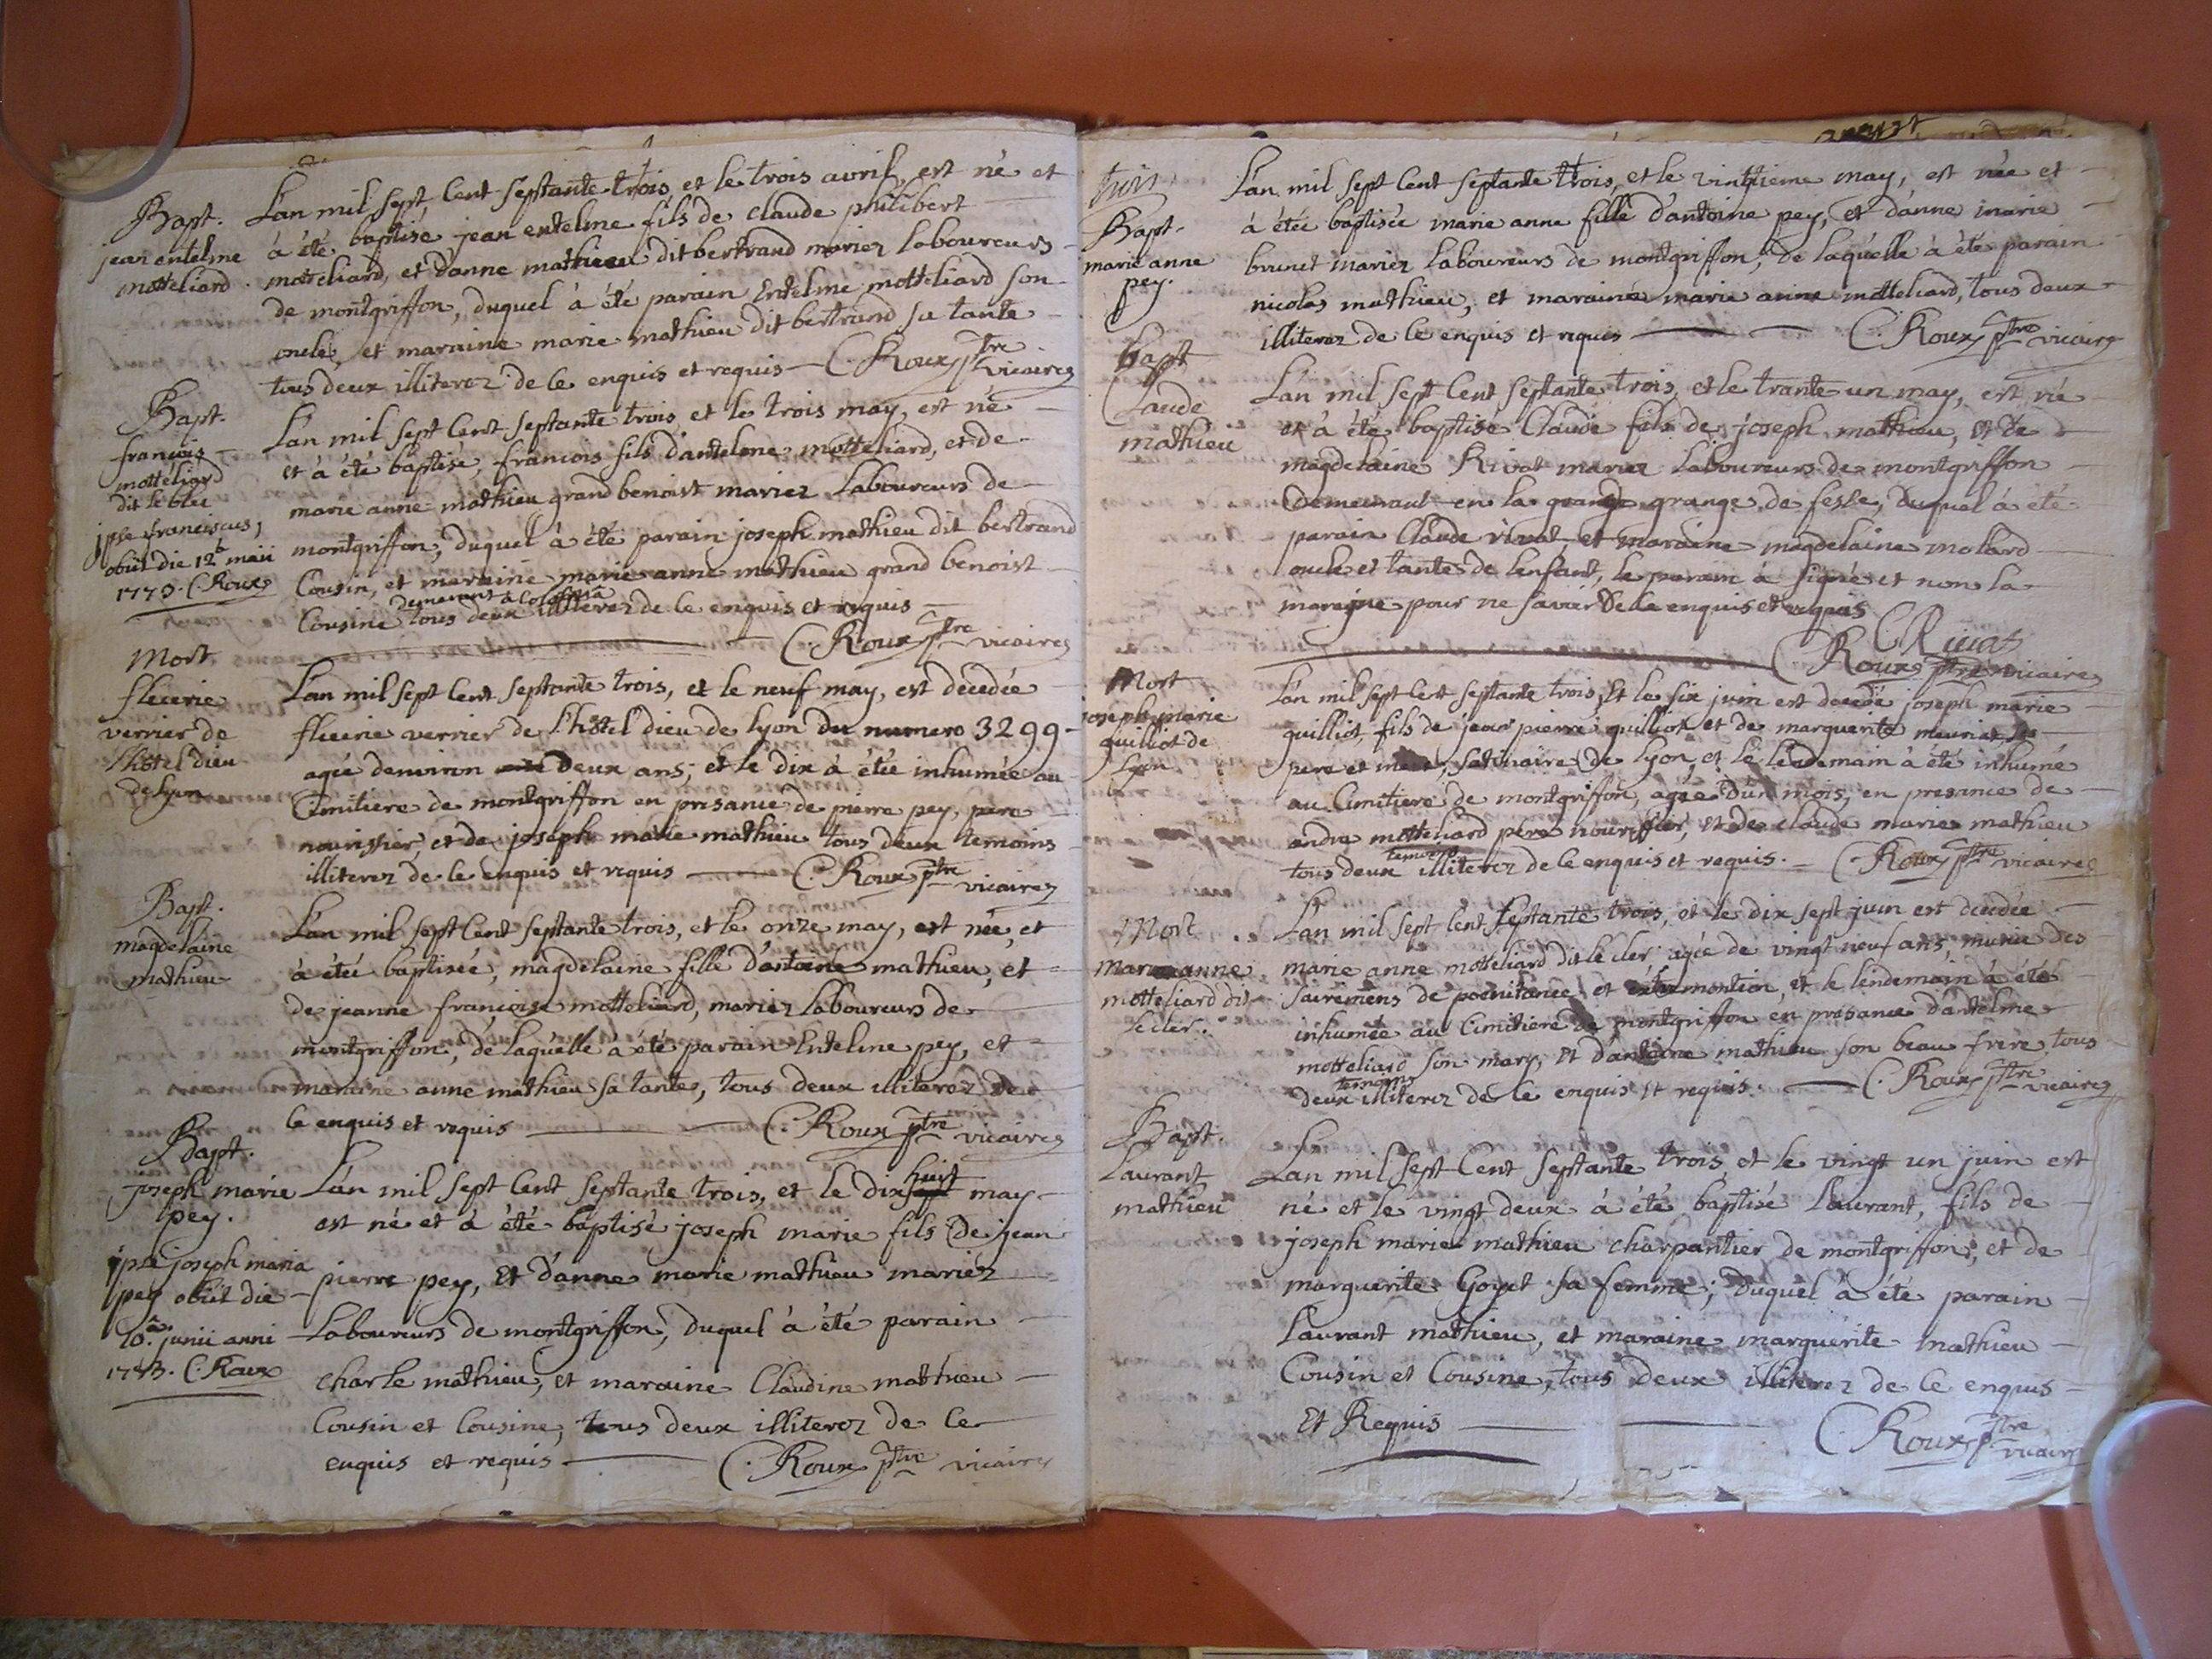 Bapt.
jean entelme
motteliard.
L'an mil sept cent septante trois, et le trois avril, est né et
à été baptise jean entelme fils de claude philibert
motteliard, et d'anne mathieu dit bertrand mariez laboureurs
de montgriffon, duquel à été parain Entelme motteliard son
oncle, et maraine marie mathieu dit bertrand sa tante
tous deux illiterez de ce enquis et requis — C. Roux ptre vicaire
Bapt.
francois
motteliard
dit le bleu
ipse franciscus,
obiit die 12a maii
1773. C. Roux
L'an mil sept cent septante trois et le trois may, est né
et à été baptise, francois fils d'antelme motteliard, et de
marie anne mathieu grand benoist mariez laboureurs de
montgriffon, duquel à été parain joseph mathieu dit bertrand
Cousin, et maraine marie anne mathieu grand benoist
Cousine tous deux illiterez de ce enquis et requis
C. Roux ptre vicaire
Mort
fleurie
verrier de
l'hotel dieu
de lyon
L'an mil sept cent septante trois, et le neuf may, est decedée
fleurie verrier de l'hôtel dieu de lyon du numero 3299
agée denviron deux ans, et le dix à étée inhumée au
Cimitiere de montgriffon en presance de pierre pey, pere
nourissier, et de joseph marie mathieu tous deux temoins
illiterez de ce enquis et requis — C. Roux ptre vicaire
Bapt.
magdelaine
mathieu
L'an mil sept cent septante trois, et le onze may, est née, et
à étée baptisée, magdelaine fille d'antoine mathieu, et
de jeanne françoise motteliard, mariez laboureurs de
montgriffon, de laquelle à été parain Entelme pey, et
maraine anne mathieu sa tante, tous deux illiterez de
ce enquis et requis — C. Roux ptre vicaire
Bapt.
joseph marie
pey.
ipse joseph maria
pey obiit die
20.a junii anni
1773. C. Roux
L'an mil sept cent septante trois, et le dix huit may
est né et à été baptisé joseph marie fils de jean
pierre pey, et d'anne marie mathieu mariez
Laboureurs de montgriffon, duquel à été parain
charle mathieu, et maraine Claudine mathieu
Cousin et Cousine, tous deux illiterez de ce
enquis et requis — C. Roux ptre vicaire
Bapt.
marie anne
pey.
L'an mil sept cent septante trois, et le vingtieme may, est née et
à étée baptisée marie anne fille d'antoine pey, et d'anne marie
brunet mariez laboureurs de montgriffon, de laquelle à été parain
nicolas mathieu, et maraine marie anne motteliard, tous deux
illiterez de ce enquis et requis — C. Roux ptre vicaire
bapt
Claude
mathieu
L'an mil sept cent septante trois, et le trante un may, est né
et à été baptisé Claude fils de joseph mathieu, et de
magdelaine Rivat mariez laboureurs de montgriffon
demeurant en la grande grange de fesse, duquel à été
parain Claude rivat et maraine magdelaine molard
oncle et tante de lenfant, le parain à signé et non la
maraine pour ne savoir de ce enquis et requis
C Rivat
C. Roux ptre vicaire
Mort
joseph marie
quilliot de
lyon
L'an mil sept cent septante trois, et le six juin est decedé joseph marie
quilliot, fils de jean pierre quilliot et de marguerite
pere et mere, satinaire de lyon, et le lendemain à été inhumé
au Cimitiere de montgriffon, agée d'un mois, en presance de
andre motteliard pere nourissier, et de claude marie mathieu
tous deux temoins illiterez de ce enquis et requis. — C. Roux ptre vicaire
Mort
marie anne
motteliard dit
le cler.
L'an mil sept cent septante trois, et le dix sept juin est decedée
marie anne motteliard dit le cler agée de vingt neuf ans, munie des
sacremens de poenitance et et le lendemain à été
inhumée au Cimitiere de montgriffon en presance d'antelme
motteliard son mary, et d'antoine mathieu son beau frere tous
deux temoins illiterez de ce enquis et requis. — C. Roux ptre vicaire
Bapt.
Laurant
mathieu
L'an mil sept cent septante trois et le vingt un juin est
né et le vingt deux à été baptisé Laurant, fils de
joseph marie mathieu charpantier de montgriffon, et de
marguerite Goyet sa femme; duquel à été parain
Laurant mathieu, et maraine marguerite mathieu
Cousin et Cousine, tous deux illiterez de ce enquis
et Requis — C. Roux ptre
vicaire